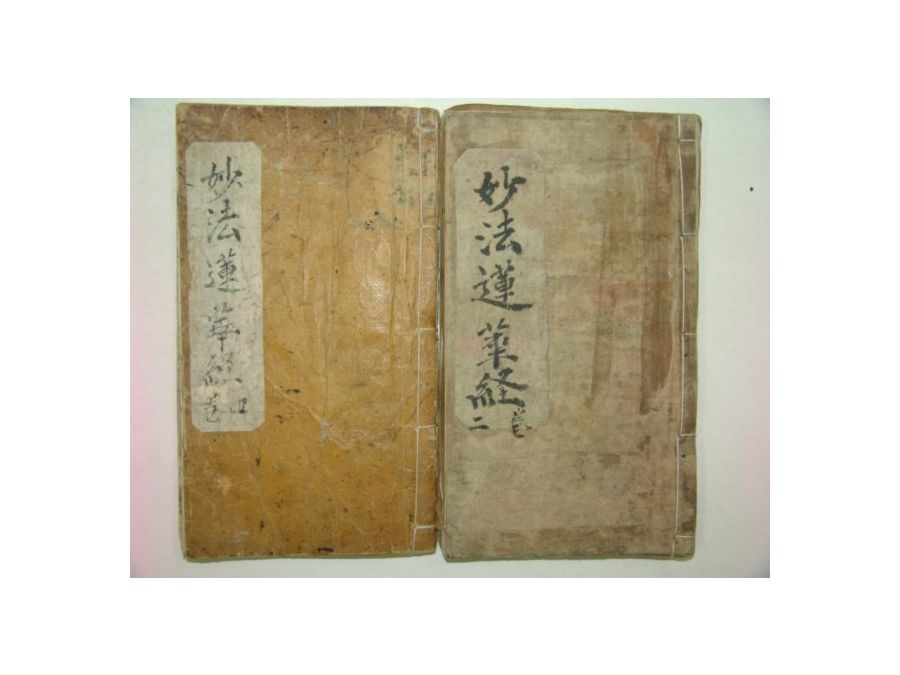 妙法蓮華経
卷四
妙法蓮華経
卷二